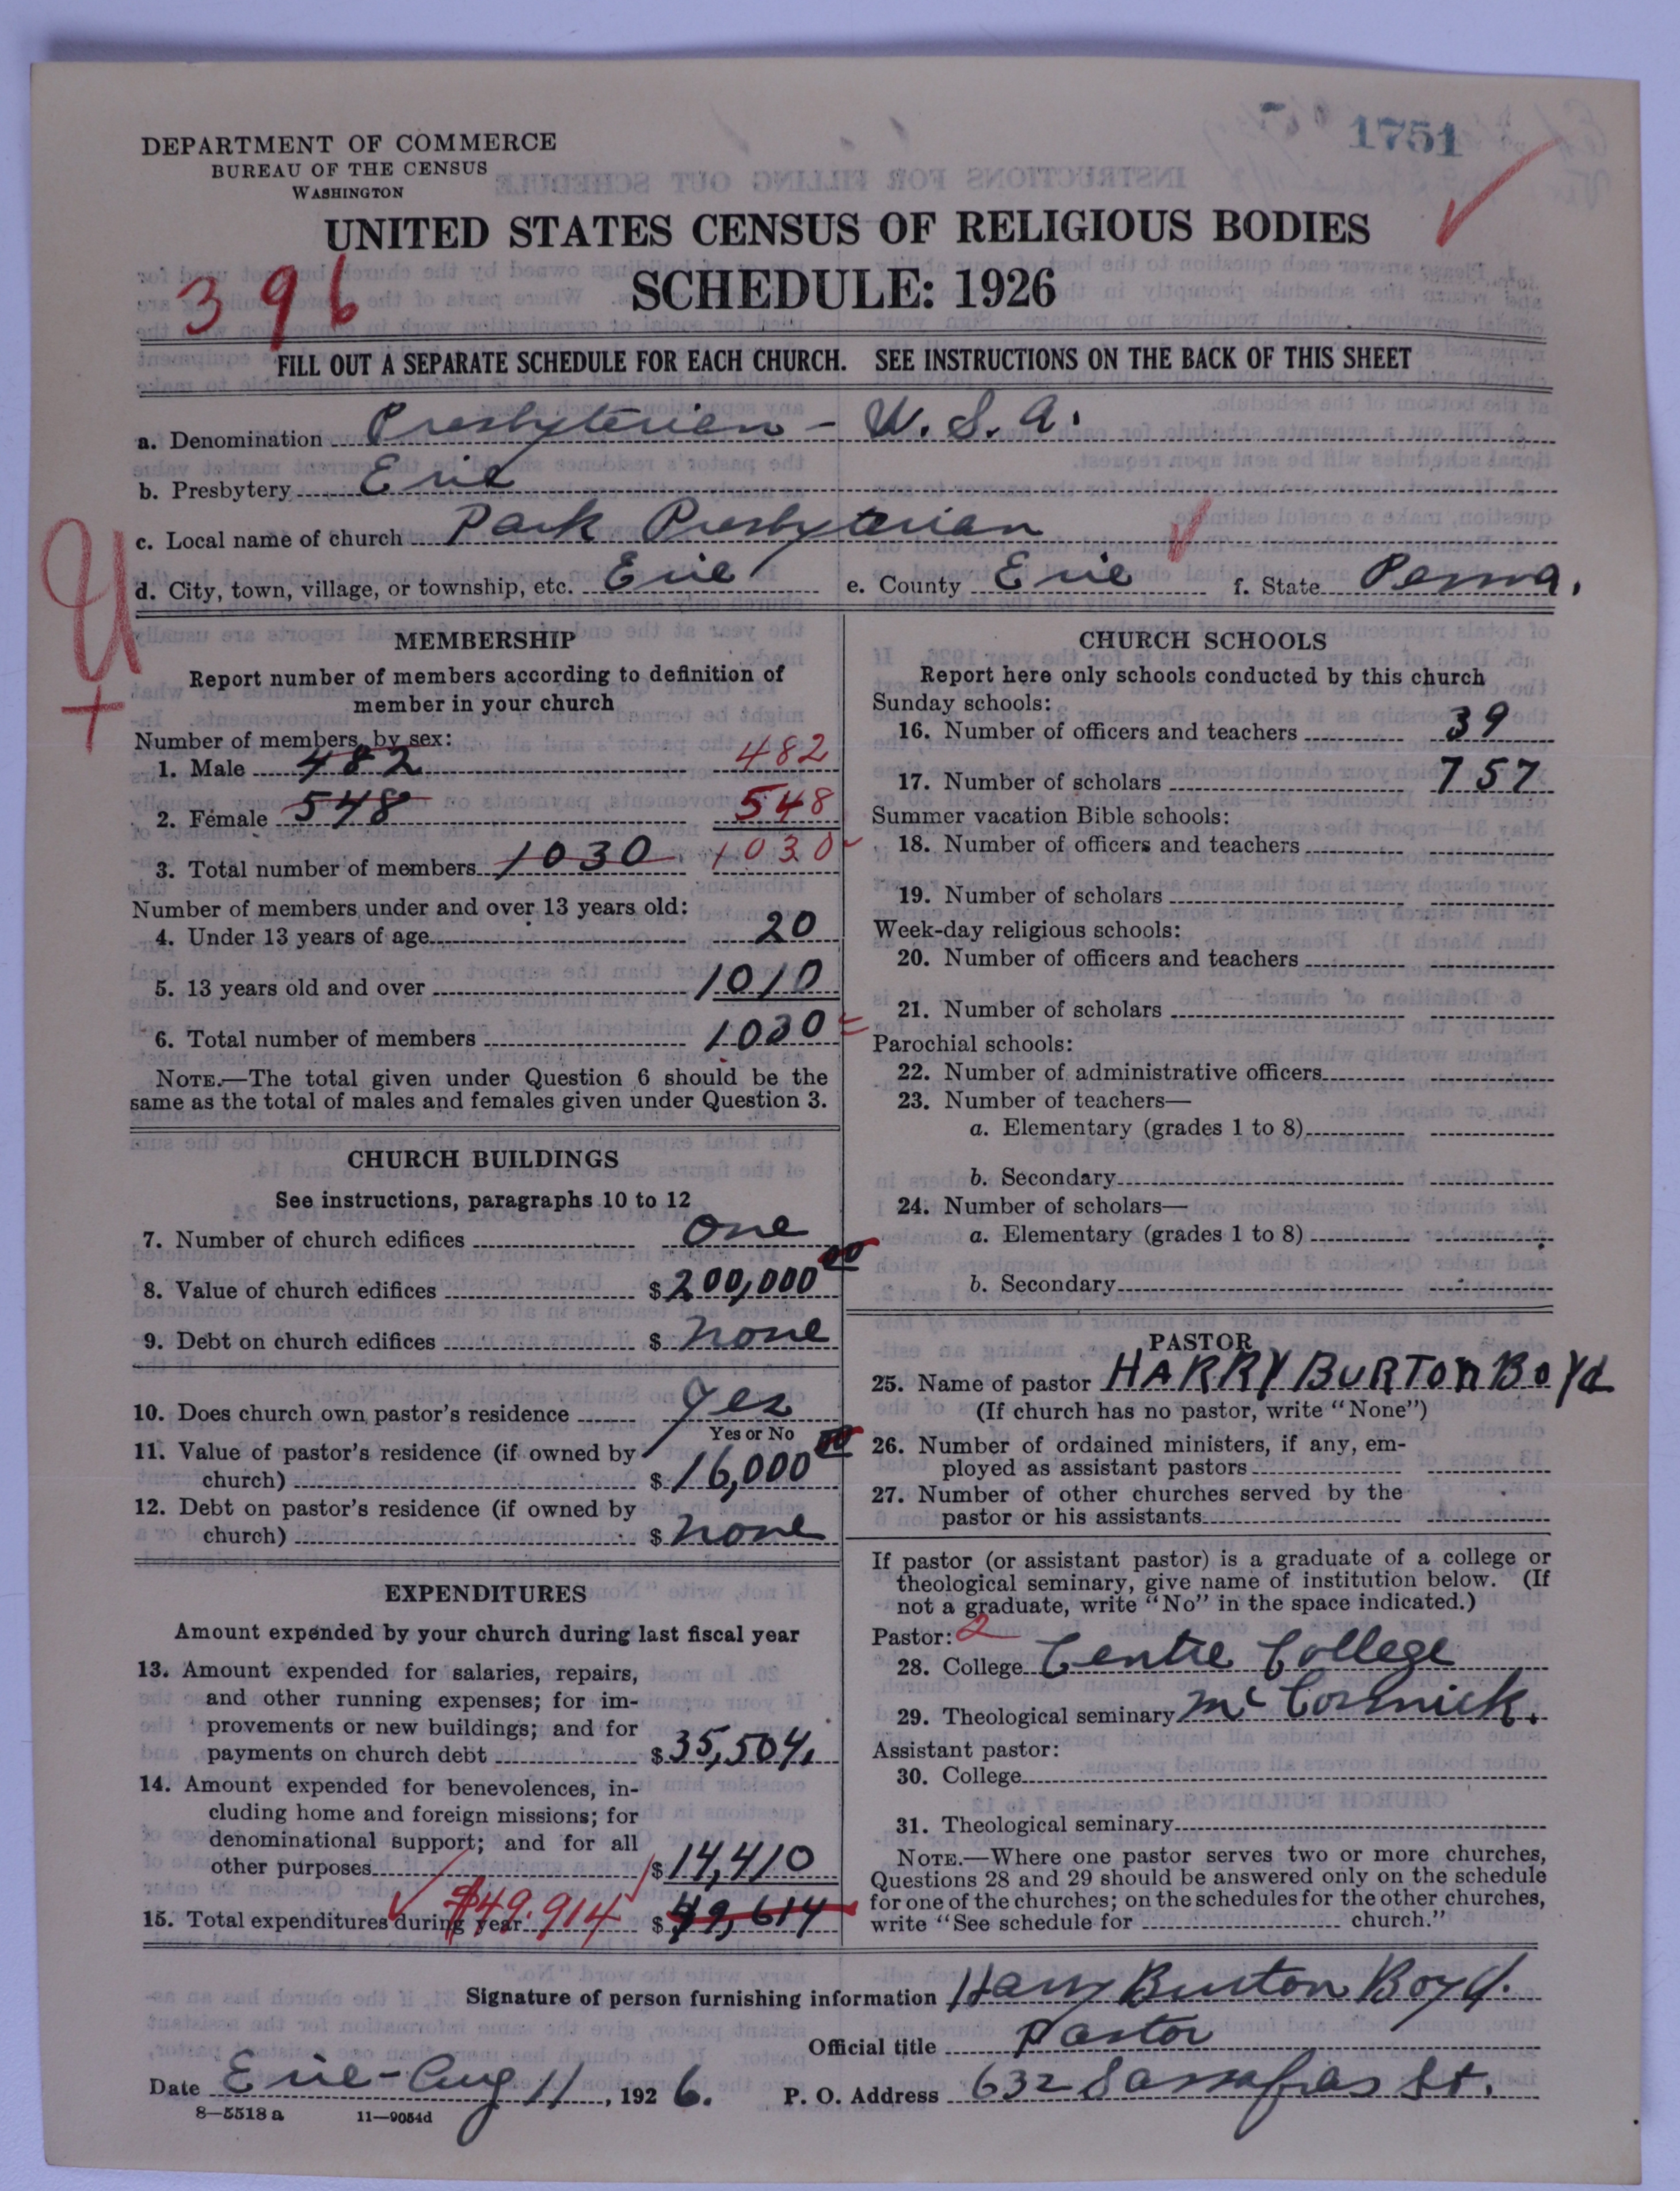 1751
DEPARTMENT OF COMMERCE
BUREAU OF THE CENSUS
WASHINGTON
UNITED STATES CENSUS OF RELIGIOUS BODIES
SCHEDULE: 1926
396
FILL OUT A SEPARATE SCHEDULE FOR EACH CHURCH. SEE INSTRUCTIONS ON THE BACK OF THIS SHEET
a. Denomination Presbyterian - U. S. A.
b. Presbytery Erie
c. Local name of church Park Presbyterian
d. City, town, village, or township, etc. Erie e. County Erie f. State Penna.
U
+
MEMBERSHIP
Report number of members according to definition of
member in your church
Number of members, by sex:
1. Male 482 482
2. Female 548 548
3. Total number of members 1030 1030
Number of members under and over 13 years old:
4. Under 13 years of age 20
5. 13 years old and over 1010
6. Total number of members 1030
NOTE.—The total given under Question 6 should be the
same as the total of males and females given under Question 3.
CHURCH BUILDINGS
See instructions, paragraphs 10 to 12
7. Number of church edifices One
8. Value of church edifices $ 200,000 00
9. Debt on church edifices $ none
10. Does church own pastor's residence Yes
Yes or No
11. Value of pastor's residence (if owned by
church) $ 16,000 00
12. Debt on pastor's residence (if owned by
church) $ none
EXPENDITURES
Amount expended by your church during last fiscal year
13. Amount expended for salaries, repairs,
and other running expenses; for im-
provements or new buildings; and for
payments on church debt $ 35,504.
14. Amount expended for benevolences, in-
cluding home and foreign missions; for
denominational support; and for all
other purposes $ 14,410
15. Total expenditures during year $49.914 $ 49,614
CHURCH SCHOOLS
Report here only schools conducted by this church
Sunday schools:
16. Number of officers and teachers 39
17. Number of scholars 757
Summer vacation Bible schools:
18. Number of officers and teachers
19. Number of scholars
Week-day religious schools:
20. Number of officers and teachers
21. Number of scholars
Parochial schools:
22. Number of administrative officers
23. Number of teachers—
a. Elementary (grades 1 to 8)
b. Secondary
24. Number of scholars—
a. Elementary (grades 1 to 8)
b. Secondary
PASTOR
25. Name of pastor HARRY BURTON BOYd
(If church has no pastor, write "None")
26. Number of ordained ministers, if any, em-
ployed as assistant pastors
27. Number of other churches served by the
pastor or his assistants
If pastor (or assistant pastor) is a graduate of a college or
theological seminary, give name of institution below. (If
not a graduate, write "No" in the space indicated.)
Pastor: 2
28. College Centre College
29. Theological seminary McCormick.
Assistant pastor:
30. College
31. Theological seminary
NOTE.—Where one pastor serves two or more churches,
Questions 28 and 29 should be answered only on the schedule
for one of the churches; on the schedules for the other churches,
write "See schedule for church."
Signature of person furnishing information Harry Burton Boyd.
Official title Pastor
Date Erie - Aug 11, 1926. P. O. Address 632 Sassafras St.
8—5518 a 11—9054d